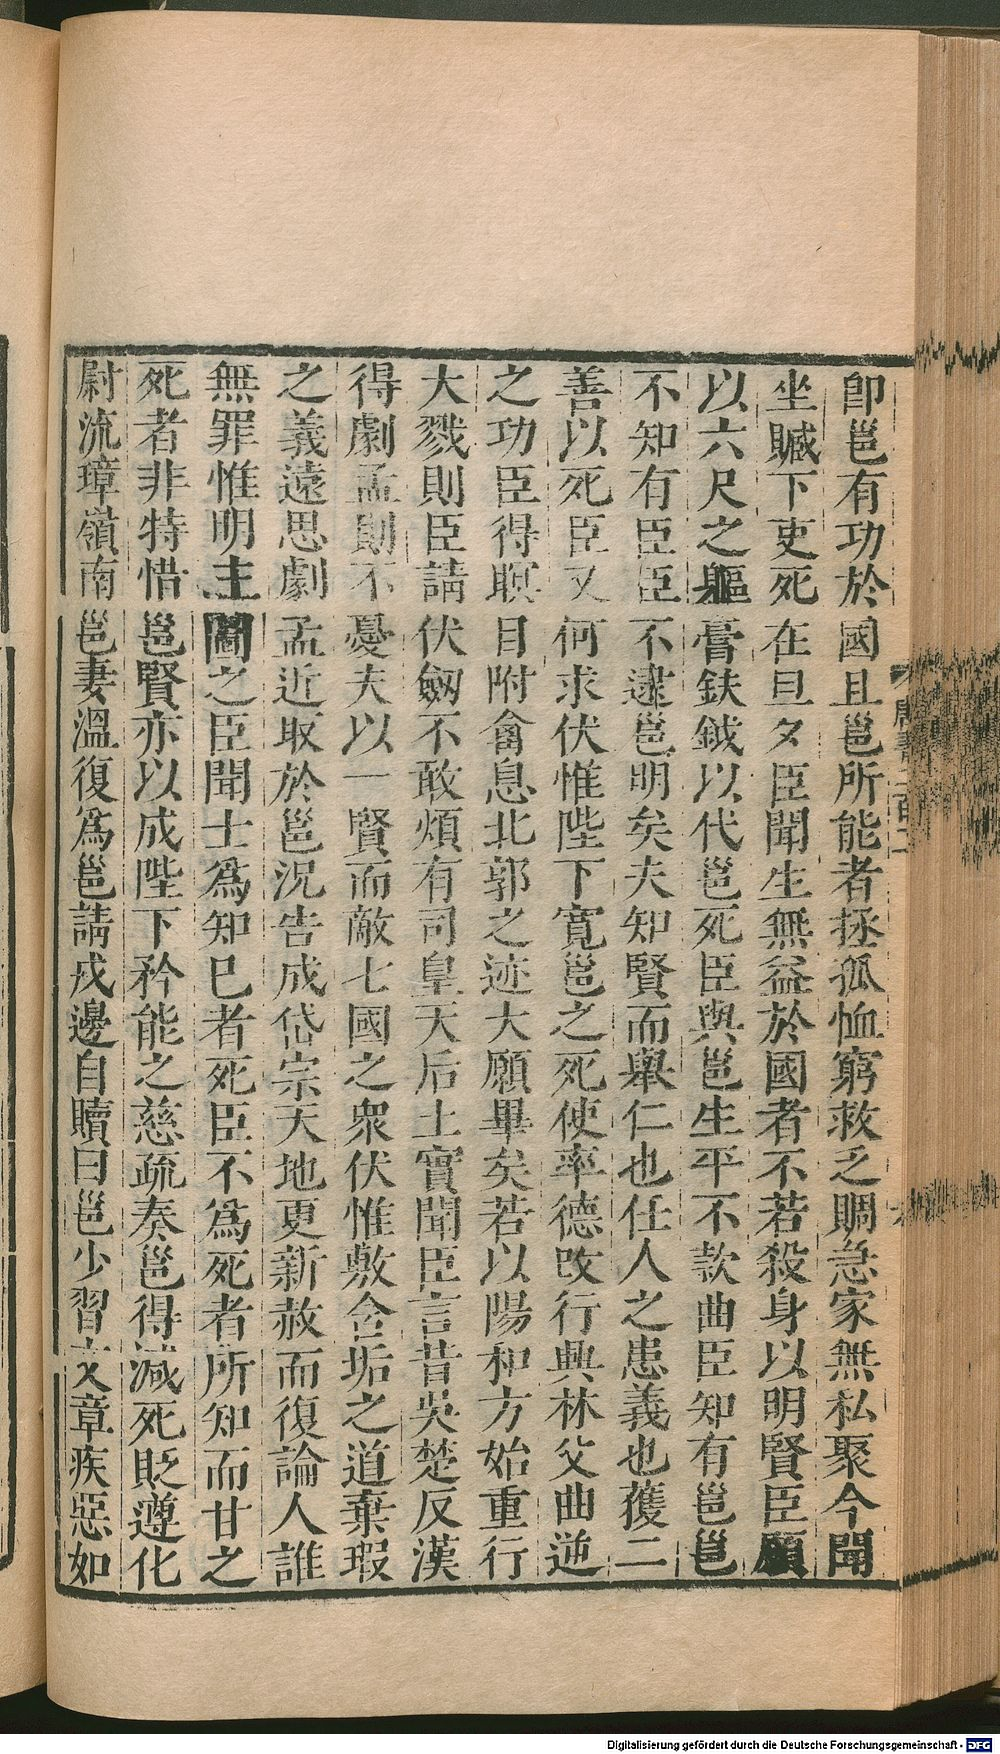 卽邕有功於國且邕所能者拯孤恤窮救乏賙急家無私聚今聞
坐贓下吏死在旦夕臣聞生無益於國者不若殺身以明賢臣願
以六尺之軀膏鈇鉞以代邕死臣與邕生平不款曲臣知有邕邕
不知有臣臣不逮邕明矣夫知賢而舉仁也任人之患義也獲二
善以死臣又何求伏惟陛下寬邕之死使率德改行興林父曲逆
之功臣得瞑目附禽息北郭之迹大願畢矣若以陽和方始重行
大戮則臣請伏劔不敢煩有司皇天后土實聞臣言昔吳楚反漢
得劇孟則不憂夫以一賢而敵七國之衆伏惟敷含垢之道棄瑕
之義遠思劇孟近取於邕況告成岱宗天地更新赦而復論人誰
無罪惟明主圖之臣聞士爲知已者死臣不爲死者所知而甘之
死者非特惜邕賢亦以成陛下矜能之慈疏奏邕得減死貶遵化
尉流璋嶺南邕妻溫復爲邕請戍邊自贖曰邕少習文章疾惡如
唐書二百二
Digitalisierung gefördert durch die Deutsche Forschungsgemeinschaft - DFG